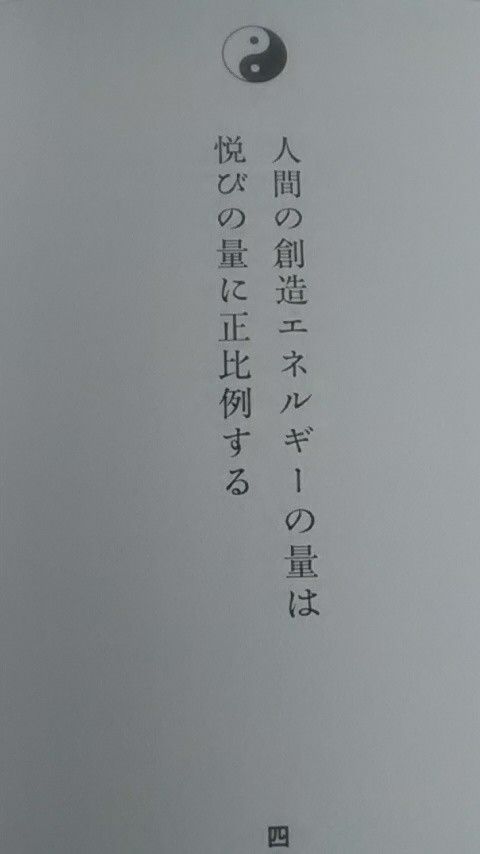 人間の創造エネルギーの量は
悦びの量に正比例する
四